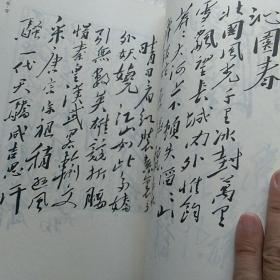 沁園春
北國風光千里冰封萬里
雪飄望長城內外惟餘
莽莽大河上下頓失滔滔山
晴日看紅裝素裹分
外妖嬈江山如此多嬌
引無數英雄競折腰
惜秦皇漢武略輸文
采唐宗宋祖稍遜風
騷一代天驕成吉思汗